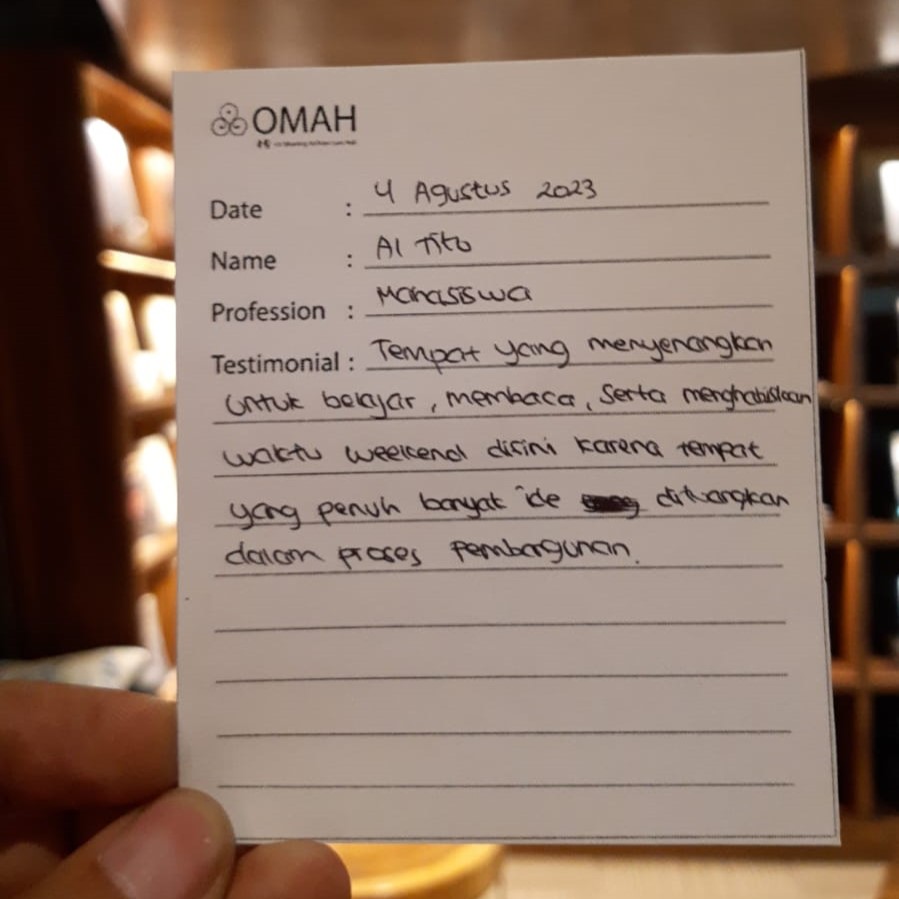 OMAH
Date : 4 Agustus 2023
Name : Al Tito
Profession : Mahasiswa
Testimonial : Tempat yang menyenangkan
untuk belajar, membaca, serta menghabiskan
waktu weekend disini karena tempat
yang penuh banyak ide dituangkan
dalam proses pembagunan.